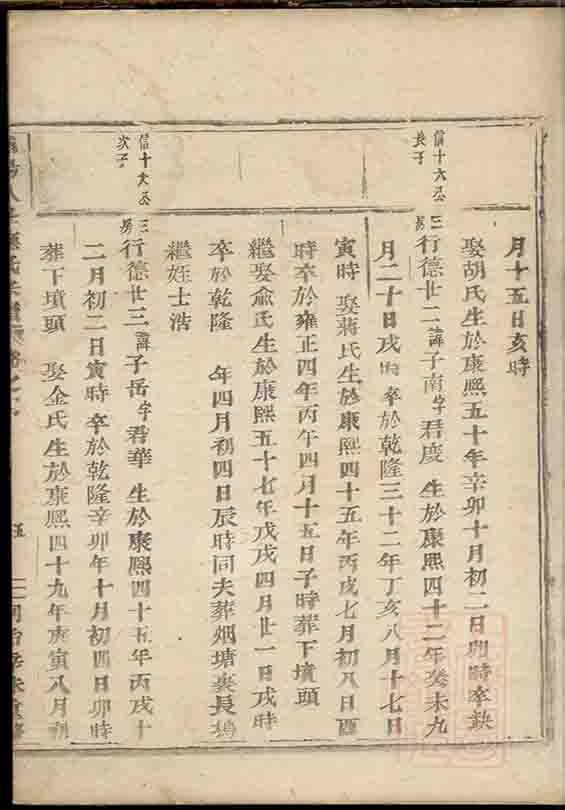 月十五日亥時
娶胡氏生於康熙五十年辛卯十月初二日卯時卒缺
信十六公
長子
行德世二諱子南字君慶 生於康熙四十二年癸未九
月二十日戌時 卒於乾隆三十二年丁亥八月十七日
寅時 娶蔣氏生於康熙四十五年丙戌七月初八日酉
時卒於雍正四年丙午四月十五日子時葬下墳頭
繼娶俞氏生於康熙五十七年戊戌四月廿一日戌時
卒於乾隆 年四月初四日辰時同夫葬烟塘裏長塢
繼姪士浩
信十六公
次子
行德世三諱子岳字君華 生於康熙四十五年丙戌十
二月初二日寅時 卒於乾隆辛卯年十月初四日卯時
葬下墳頭 娶金氏生於康熙四十九年庚寅八月初
五